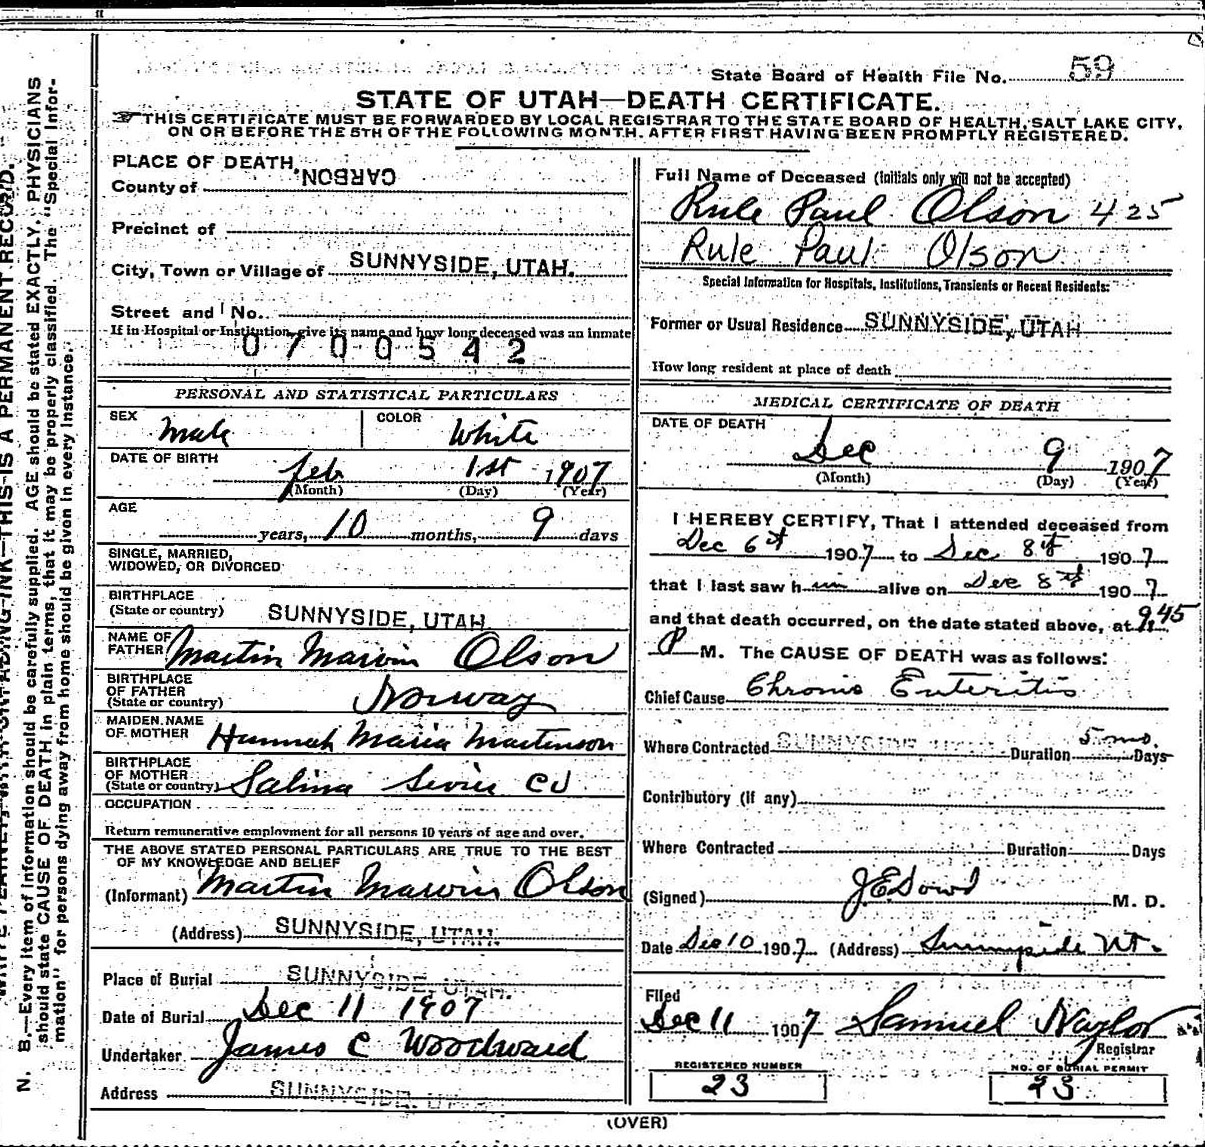 State Board of Health File No. 59
STATE OF UTAH—DEATH CERTIFICATE.
THIS CERTIFICATE MUST BE FORWARDED BY LOCAL REGISTRAR TO THE STATE BOARD OF HEALTH, SALT LAKE CITY,
ON OR BEFORE THE 5TH OF THE FOLLOWING MONTH. AFTER FIRST HAVING BEEN PROMPTLY REGISTERED.
PLACE OF DEATH
County of CARBON.
Precinct of
City, Town or Village of SUNNYSIDE, UTAH.
Street and No.
If in Hospital or Institution, give its name and how long deceased was an inmate
0700542
PERSONAL AND STATISTICAL PARTICULARS
SEX Male COLOR White
DATE OF BIRTH Feb 1st 1907
(Month) (Day) (Year)
AGE
years, 10 months, 9 days
SINGLE, MARRIED,
WIDOWED, OR DIVORCED
BIRTHPLACE
(State or country) SUNNYSIDE, UTAH
NAME OF
FATHER Martin Marvin Olson
BIRTHPLACE
OF FATHER
(State or country) Norway
MAIDEN NAME
OF MOTHER Hannah Maria Martinson
BIRTHPLACE
OF MOTHER
(State or country) Salina Sevier Co
OCCUPATION
Return remunerative employment for all persons 10 years of age and over.
THE ABOVE STATED PERSONAL PARTICULARS ARE TRUE TO THE BEST
OF MY KNOWLEDGE AND BELIEF
(Informant) Martin Marvin Olson
(Address) SUNNYSIDE, UTAH.
Place of Burial SUNNYSIDE, UTAH.
Date of Burial Dec 11 1907
Undertaker James C Woodward
Address SUNNYSIDE, UT
Full Name of Deceased (Initials only will not be accepted)
Rule Paul Olson 425
Rule Paul Olson
Special Information for Hospitals, Institutions, Transients or Recent Residents:
Former or Usual Residence SUNNYSIDE, UTAH
How long resident at place of death
MEDICAL CERTIFICATE OF DEATH
DATE OF DEATH
Dec 9 1907
(Month) (Day) (Year)
I HEREBY CERTIFY, That I attended deceased from
Dec 6th 1907 to Dec 8th 1907
that I last saw him alive on Dec 8th 1907
and that death occurred, on the date stated above, at 9.45
P M. The CAUSE OF DEATH was as follows:
Chief Cause Chronic Enteritis
Where Contracted SUNNYSIDE Duration 5 mo. Days
Contributory (if any)
Where Contracted Duration Days
(Signed) J E Dowd M. D.
Date Dec 10 1907 (Address) Sunnyside Ut.
Filed
Dec 11 1907 Samuel Naylor
Registrar
REGISTERED NUMBER NO. OF BURIAL PERMIT
23 23
(OVER)
N. B.—Every item of information should be carefully supplied. AGE should be stated EXACTLY. PHYSICIANS
should state CAUSE OF DEATH in plain terms, that it may be properly classified. The "Special Infor-
mation" for persons dying away from home should be given in every instance.
THIS IS A PERMANENT RECORD.